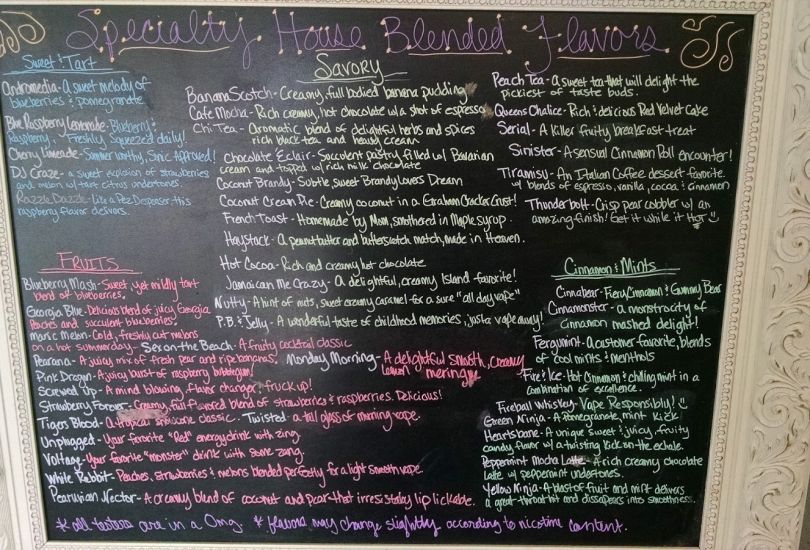 Specialty House Blended Flavors
Sweet & Tart
Andromedia - A sweet melody of
blueberries & pomegranate
Blue Raspberry Lemonade - Blueberry &
Raspberry - Freshly squeezed daily!
Cherry Limeade - Summer worthy, Sonic Approved!
DJ Craze - a sweet explosion of strawberries
and melon w/ tart citrus undertones.
Razzle Dazzle - Like a Pez Despenser this
raspberry flavor delivers.
Savory
Banana Scotch - Creamy, full bodied banana pudding
Cafe Mocha - Rich creamy, hot chocolate w/ a shot of espresso
Chi Tea - Aromatic blend of delightful herbs and spices
rich black tea and heavy cream
Chocolate Eclair - Succulent pastry filled w/ Bavarian
cream and topped w/ rich milk chocolate
Coconut Brandy - Subtle, sweet Brandy Lovers Dream
Coconut Cream Pie - Creamy coconut in a Graham Cracker Crust!
French Toast - Homemade by Mom, smothered in Maple syrup.
Haystack - A peanut butter and butterscotch match, made in Heaven.
Hot Cocoa - Rich and creamy hot chocolate
Jamaican Me Crazy - A delightful, creamy Island favorite!
Nutty - A hint of nuts, sweet creamy caramel for a sure "all day vape"
P.B. & Jelly - A wonderful taste of childhood memories, just a vape away!
Peach Tea - A sweet tea that will delight the
pickiest of taste buds.
Queens Chalice - Rich & delicious Red Velvet Cake
Serial - A Killer fruity breakfast treat
Sinister - A sensual Cinnamon Roll encounter!
Tiramisu - An Italian Coffee dessert favorite
w/ blends of espresso, vanilla, cocoa & cinnamon
Thunderbolt - Crisp pear cobbler w/ an
amazing finish! Get it while it Hot
Fruits
Blueberry Mash - Sweet, yet mildly tart
blend of blueberries.
Georgia Blue - Delicious blend of juicy Georgia
Peaches and succulent blueberries.
Melonc Melon - Cold, freshly cut melons
on a hot summer day. Sex on the Beach - A fruity cocktail classic
Pearana - A juicy mix of fresh pear and ripe bananas.
Monday Morning - A delightful smooth, creamy
lemon meringue
Pink Dragon - A juicy burst of raspberry bubblegum!
Screwed Up - A mind blowing, flavor changer, fruck up!
Strawberry Forever - Creamy, full flavored blend of strawberries & raspberries. Delicious!
Tigers Blood - A tropical snocone classic. Twisted - a tall glass of morning vape.
Unplugged - Your favorite "Red" energy drink with zing.
Voltage - Your favorite "monster" drink with some zang.
White Rabbit - Peaches, strawberries & melons blended perfectly for a light smooth vape.
Pearuvian Nector - A creamy blend of coconut and pear that irresistably lip lickable.
Cinnamon & Mints
Cinnabear - Fiery Cinnamon & Gummy Bear
Cinnamonster - a monstrocity of
cinnamon mashed delight!
Fergumint - a customer favorite, blends
of cool mints & menthols
Fire & Ice - Hot Cinnamon & chilling mint in a
combination of excellence.
Fireball Whiskey - Vape Responsibly!
Green Ninja - A pomegranate, mint kick
Heartsbane - A unique sweet & juicy, fruity
candy flavor w/ a twisting Kick on the exhale.
Peppermint Mocha Latte - A rich creamy chocolate
latte w/ peppermint undertones.
Yellow Ninja - A blast of fruit and mint delivers
a great throat hit and dissapears into smoothness.
* all testers are in a 0mg. * flavors may change slightly according to nicotine content.